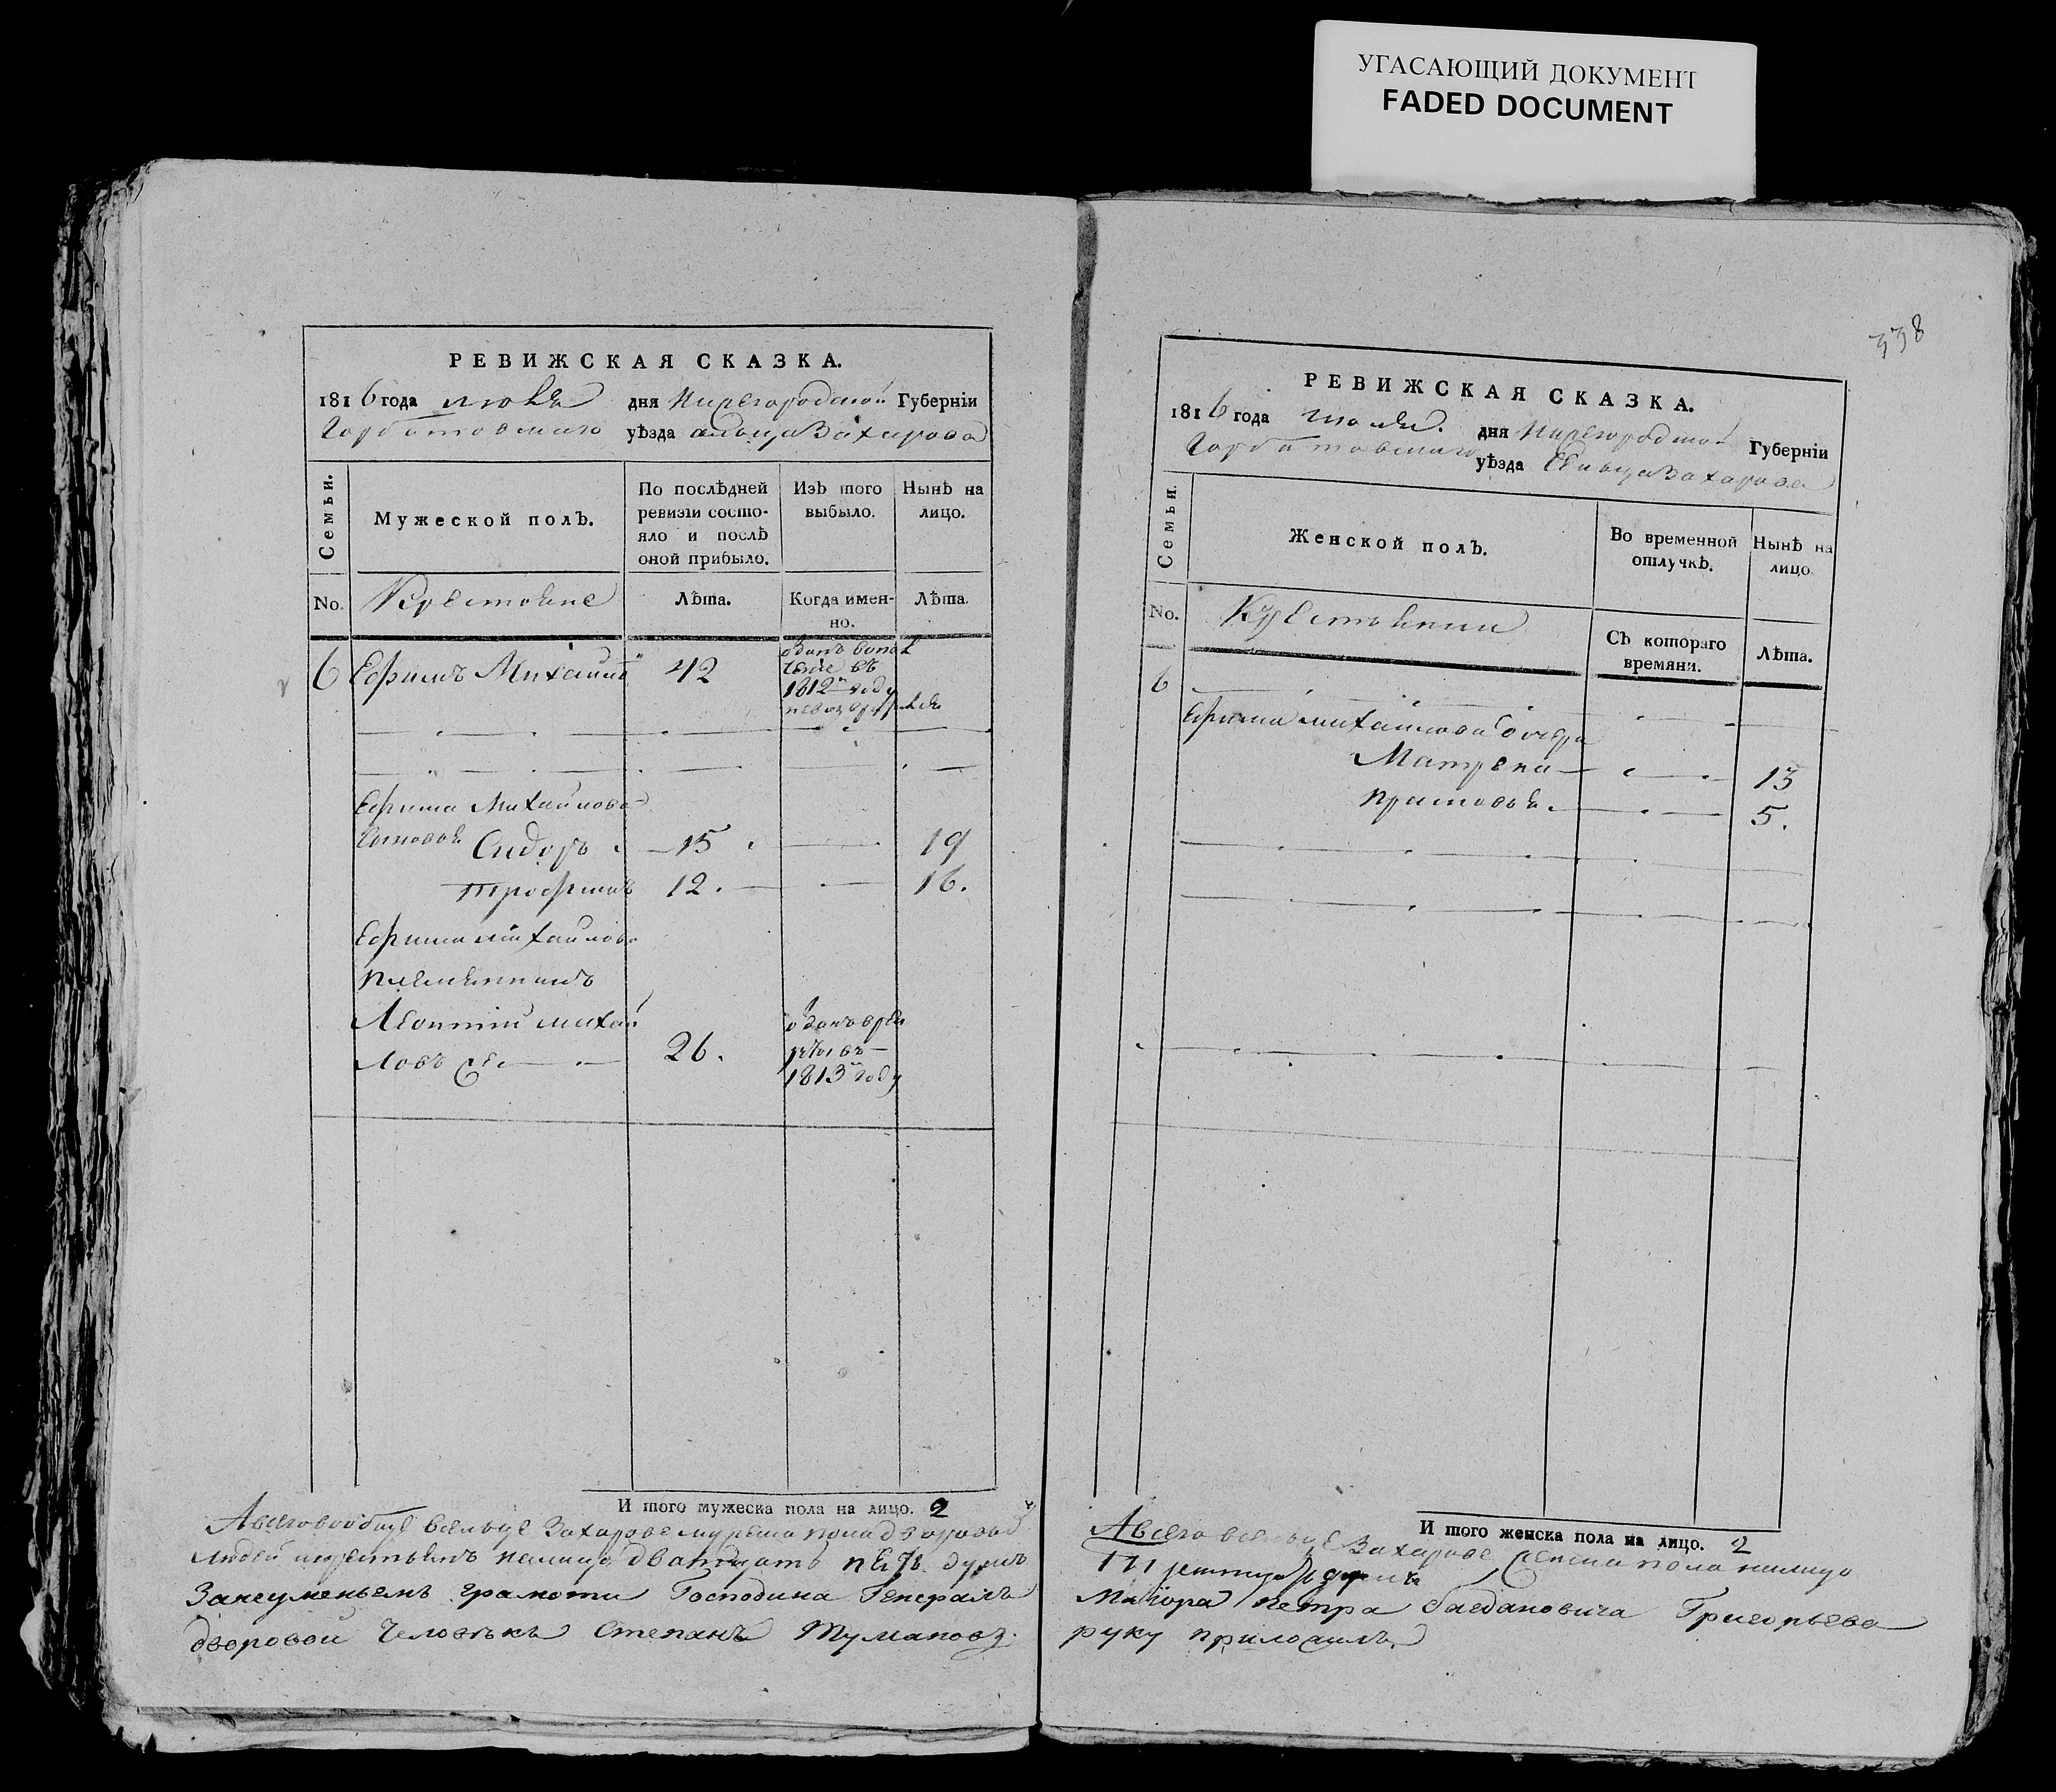 УГАСАЮЩИЙ ДОКУМЕНТ
FADED DOCUMENT
РЕВИЖСКАЯ СКАЗКА.
1816 года июля дня Нижегородской Губернїи
Горбатовскаго уѣзда сельца Захарова
Семьи.
Мужеской полъ.
По послѣдней
ревизїи состо-
яло и послѣ
оной прибыло.
Изъ того
выбыло.
Нынѣ на
лицо.
No.
Крестьяне
Лѣта.
Когда имен-
но.
Лѣта.
6 Ефимъ Михайловъ 42
отданъ в ополче
ние въ
1812м году
Ефима Михайлова
Сидоръ 15 19
Трофимъ 12. 16.
Ефима Михайлова
племянникъ
Леонтий Михай
ловъ 26.
отданъ в рек
руты въ
1813м году
И того мужеска пола на лицо. 2
А всего вообще в сельце Захарове мужеска пола дворовыхъ
людей и крестьянъ на лицо двадцать пять душъ
За неумѣньемъ грамоти Господина Генералъ
дворовой человѣкъ Степанъ Тумановъ
338
РЕВИЖСКАЯ СКАЗКА.
1816 года июля дня Нижегородской Губернїи
Горбатовскаго уѣзда сельца Захарова
Семьи.
Женской полъ.
Во временной
отлучкѣ.
Нынѣ на
лицо.
No.
Крестьянки
Съ котораго
времяни.
Лѣта.
6
Ефима Михайлова дочери
Матрена 13
Прасковья 5.
И того женска пола на лицо. 2
А всего в сельце Захарове женска пола на лицо
душъ
Маіора Петра Багдановича Григорьева
руку приложилъ